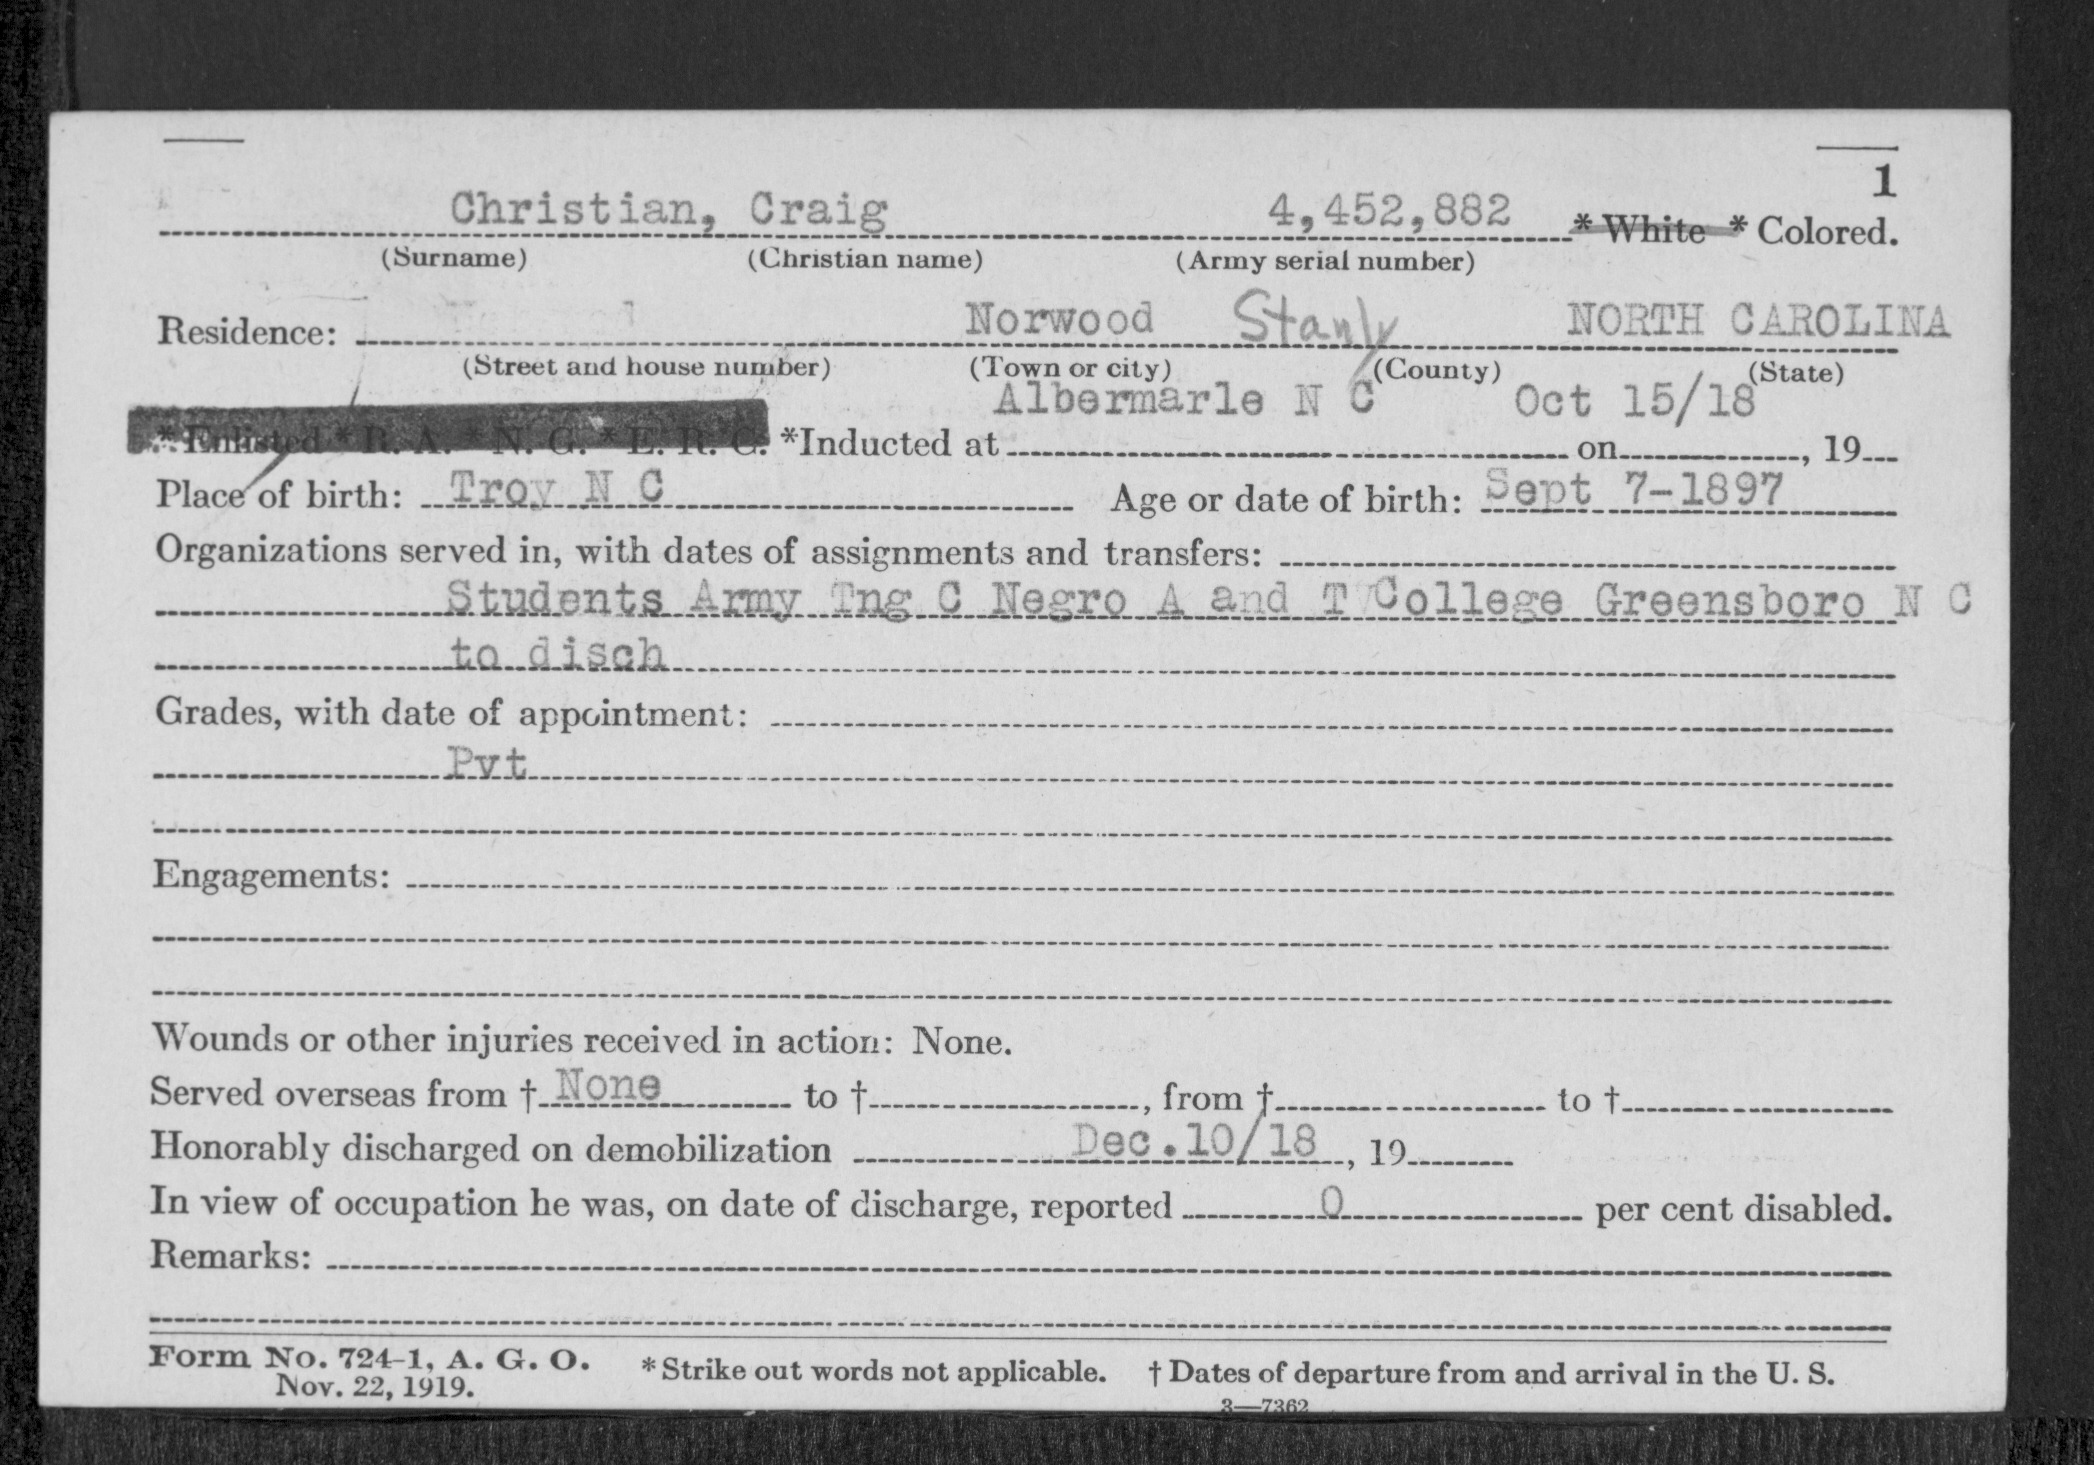 1
Christian, Craig 4,452,882 * White * Colored.
(Surname) (Christian name) (Army serial number)
Residence: Norwood Stanly NORTH CAROLINA
(Street and house number) (Town or city) (County) (State)
Albermarle N C Oct 15/18
* Enlisted * R. A. * N. G. * E. R. C. *Inducted at on , 19
Place of birth: Troy N C Age or date of birth: Sept 7-1897
Organizations served in, with dates of assignments and transfers:
Students Army Tng C Negro A and T College Greensboro N C
to disch
Grades, with date of appointment:
Pvt
Engagements:
Wounds or other injuries received in action: None.
Served overseas from † None to † , from † to †
Honorably discharged on demobilization Dec.10/18 , 19
In view of occupation he was, on date of discharge, reported 0 per cent disabled.
Remarks:
Form No. 724-1, A. G. O. * Strike out words not applicable. † Dates of departure from and arrival in the U. S.
Nov. 22, 1919.
3—7362